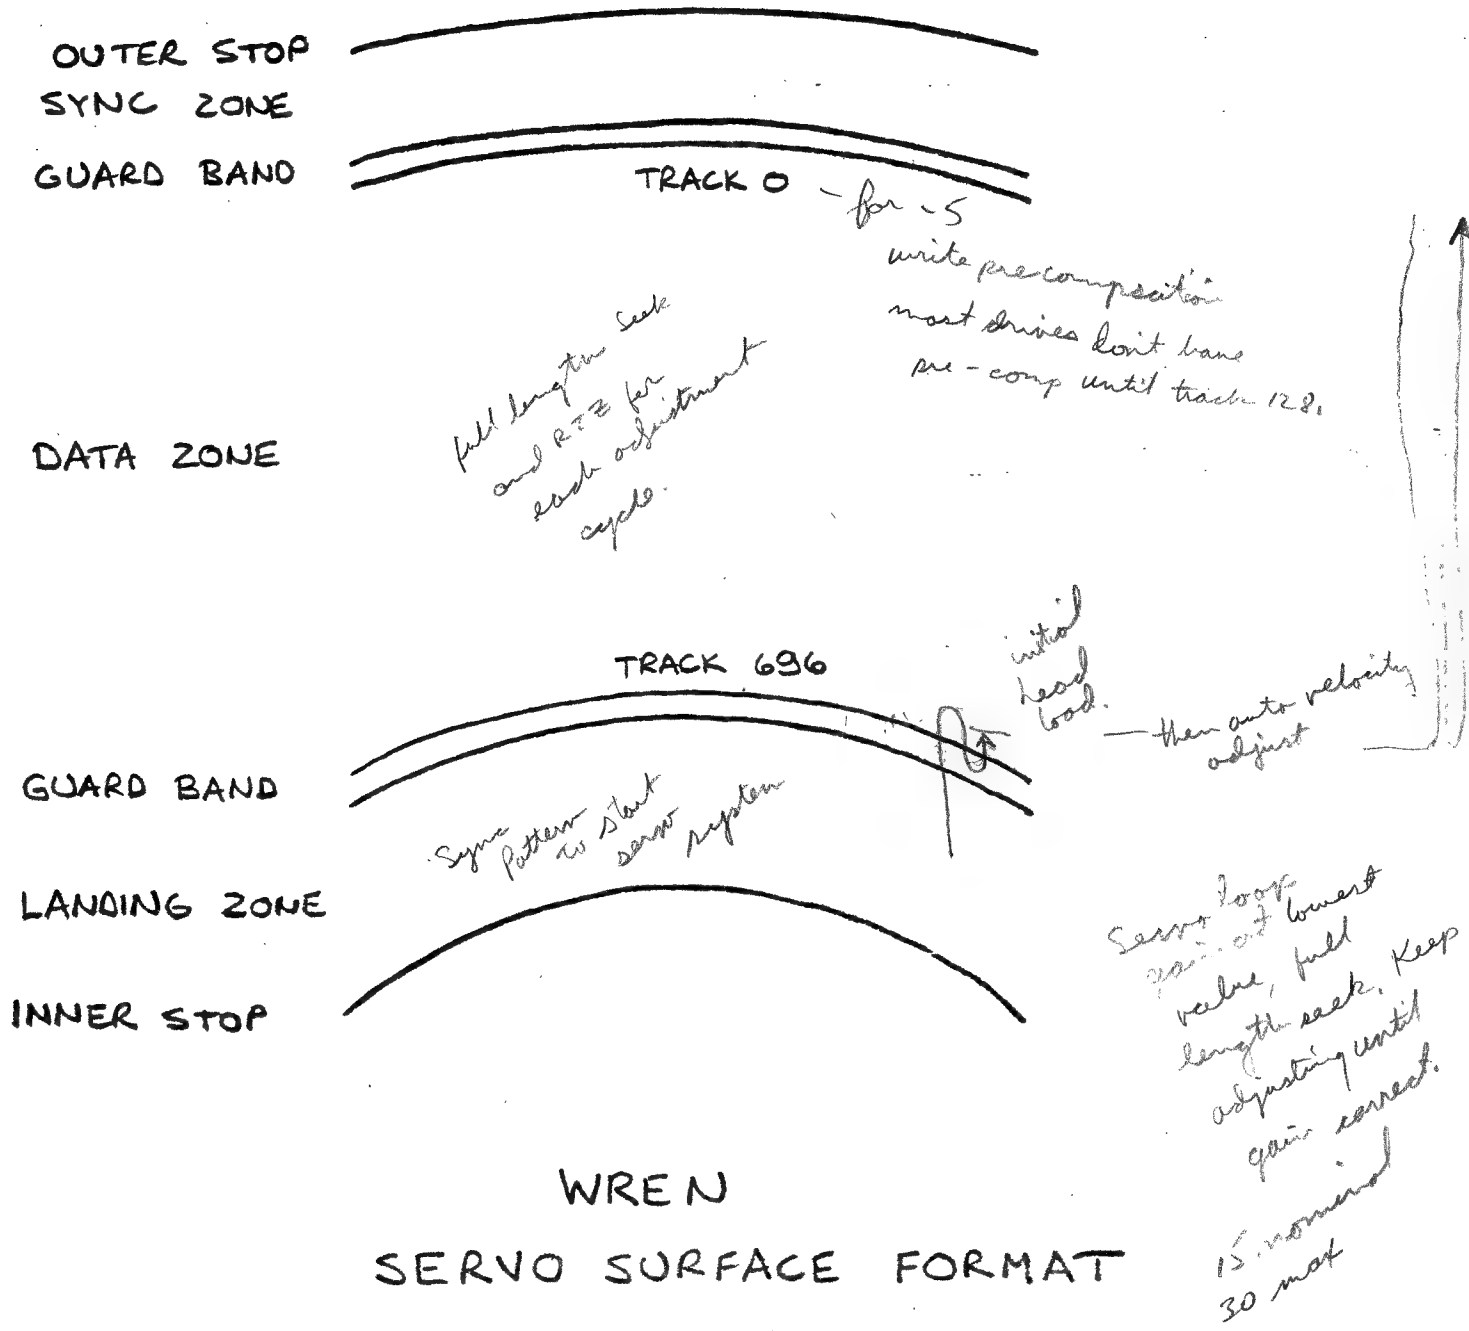 OUTER STOP
SYNC ZONE
GUARD BAND
TRACK 0 - for -5
write precompsation
most drives don't have
pre-comp until track 128.
full length seek
and RTZ for
each adjustment
cycle.
DATA ZONE
TRACK 696
initial
head
load.
— then auto velocity
adjust
GUARD BAND
Sync
Pattern
to start
servo
system
LANDING ZONE
INNER STOP
Servo loop
gain at lowest
value, full
length seek. Keep
adjusting until
gain correct.
15 nominal
30 max
WREN
SERVO SURFACE FORMAT